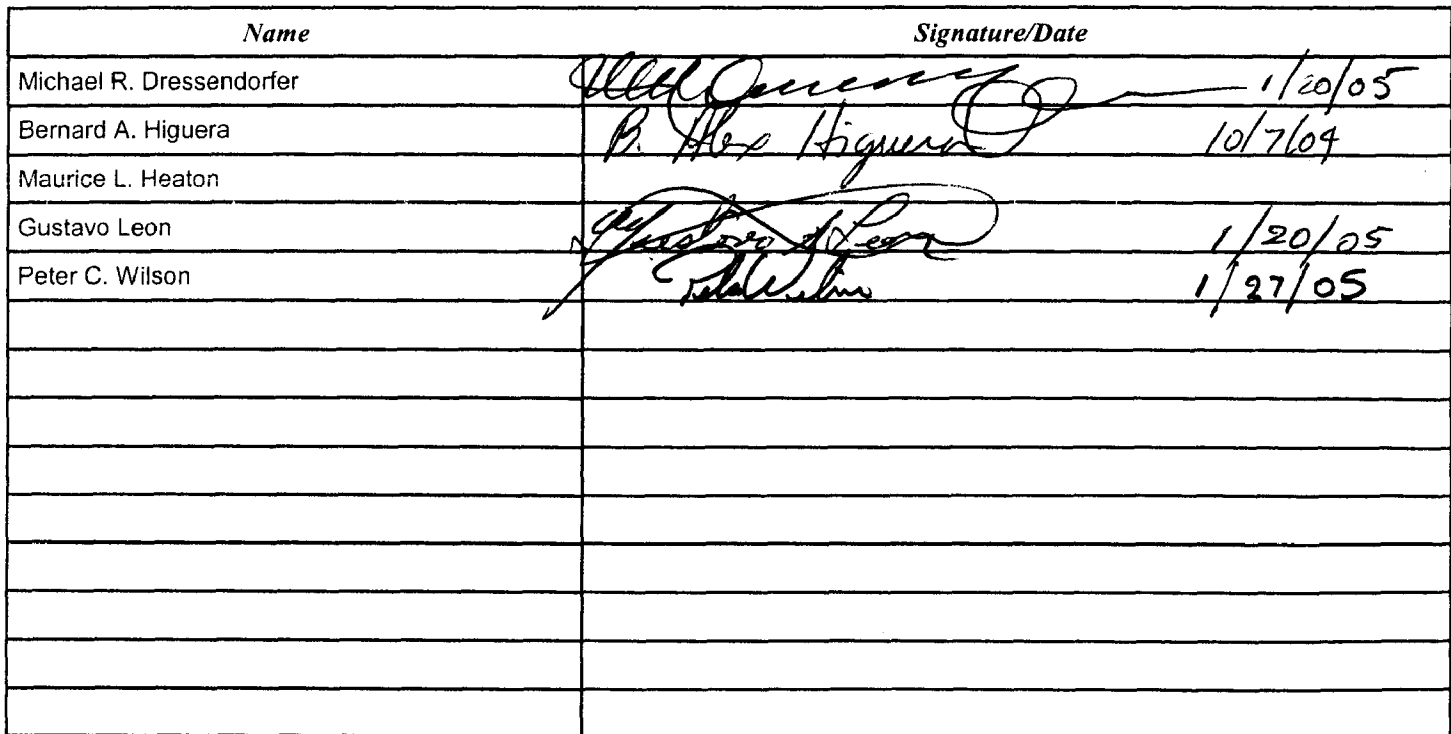 Name Signature/Date
Michael R. Dressendorfer 1/20/05
Bernard A. Higuera B. Alex Higuera 10/7/04
Maurice L. Heaton
Gustavo Leon Gustavo A Leon 1/20/05
Peter C. Wilson Pete Wilson 1/27/05